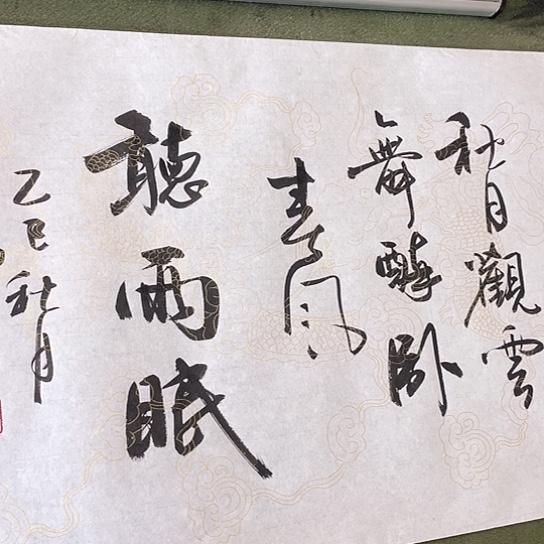 秋月觀雲
舞醉卧
春風
聽雨眠
乙巳秋月